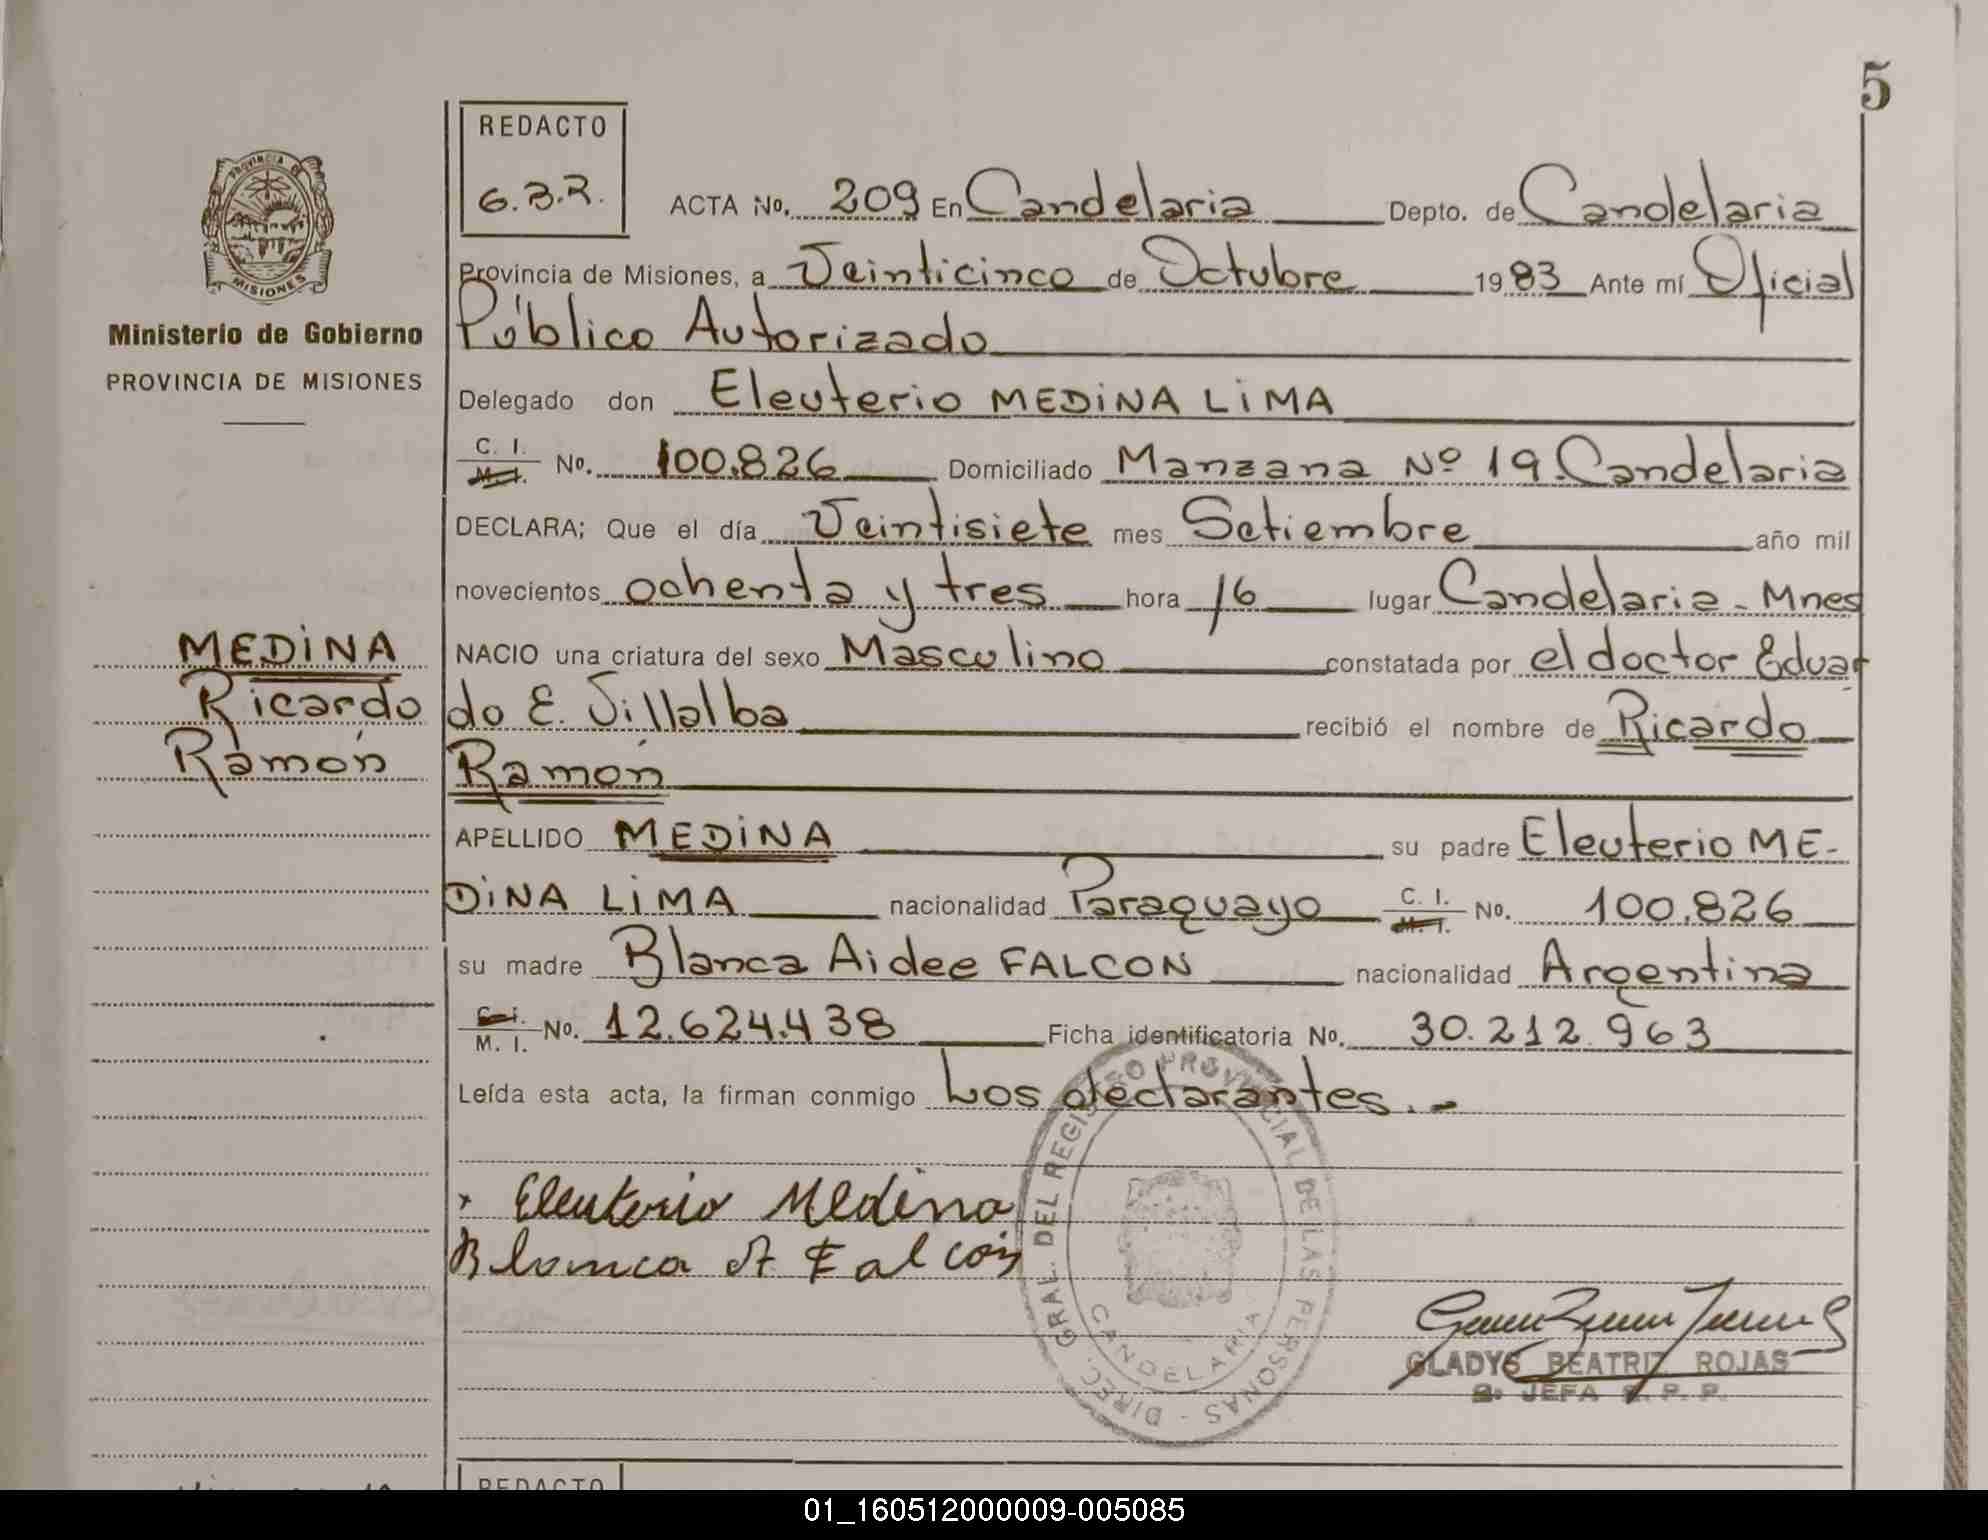 5
REDACTO
G.B.R.
ACTA No. 209 En Candelaria Depto. de Candelaria
Provincia de Misiones, a Veinticinco de Octubre 1983 Ante mí Oficial
Público Autorizado
PROVINCIA DE
MISIONES
Ministerio de Gobierno
PROVINCIA DE MISIONES
Delegado don Eleuterio MEDINA LIMA
C. I. M. I. No. 100.826 Domiciliado Manzana Nº 19. Candelaria
DECLARA; Que el día Veintisiete mes Setiembre año mil
novecientos ochenta y tres hora 16 lugar Candelaria - Mnes
NACIO una criatura del sexo Masculino constatada por el doctor Eduar
do E. Villalba recibió el nombre de Ricardo
Ramón
MEDINA
Ricardo
Ramón
APELLIDO MEDINA su padre Eleuterio ME-
DINA LIMA nacionalidad Paraguayo C. I. M. I. No. 100.826
su madre Blanca Aidee FALCON nacionalidad Argentina
C. I. M. I. No. 12.624.438 Ficha identificatoria No. 30.212.963
Leída esta acta, la firman conmigo Los declarantes.-
Eleuterio Medina
Blanca A Falcón
DIREC. GRAL. DEL REGISTRO PROVINCIAL DE LAS PERSONAS -
CANDELARIA
GLADYS BEATRIZ ROJAS
2º JEFA R. P. P.
REDACTO
01_160512000009-005085